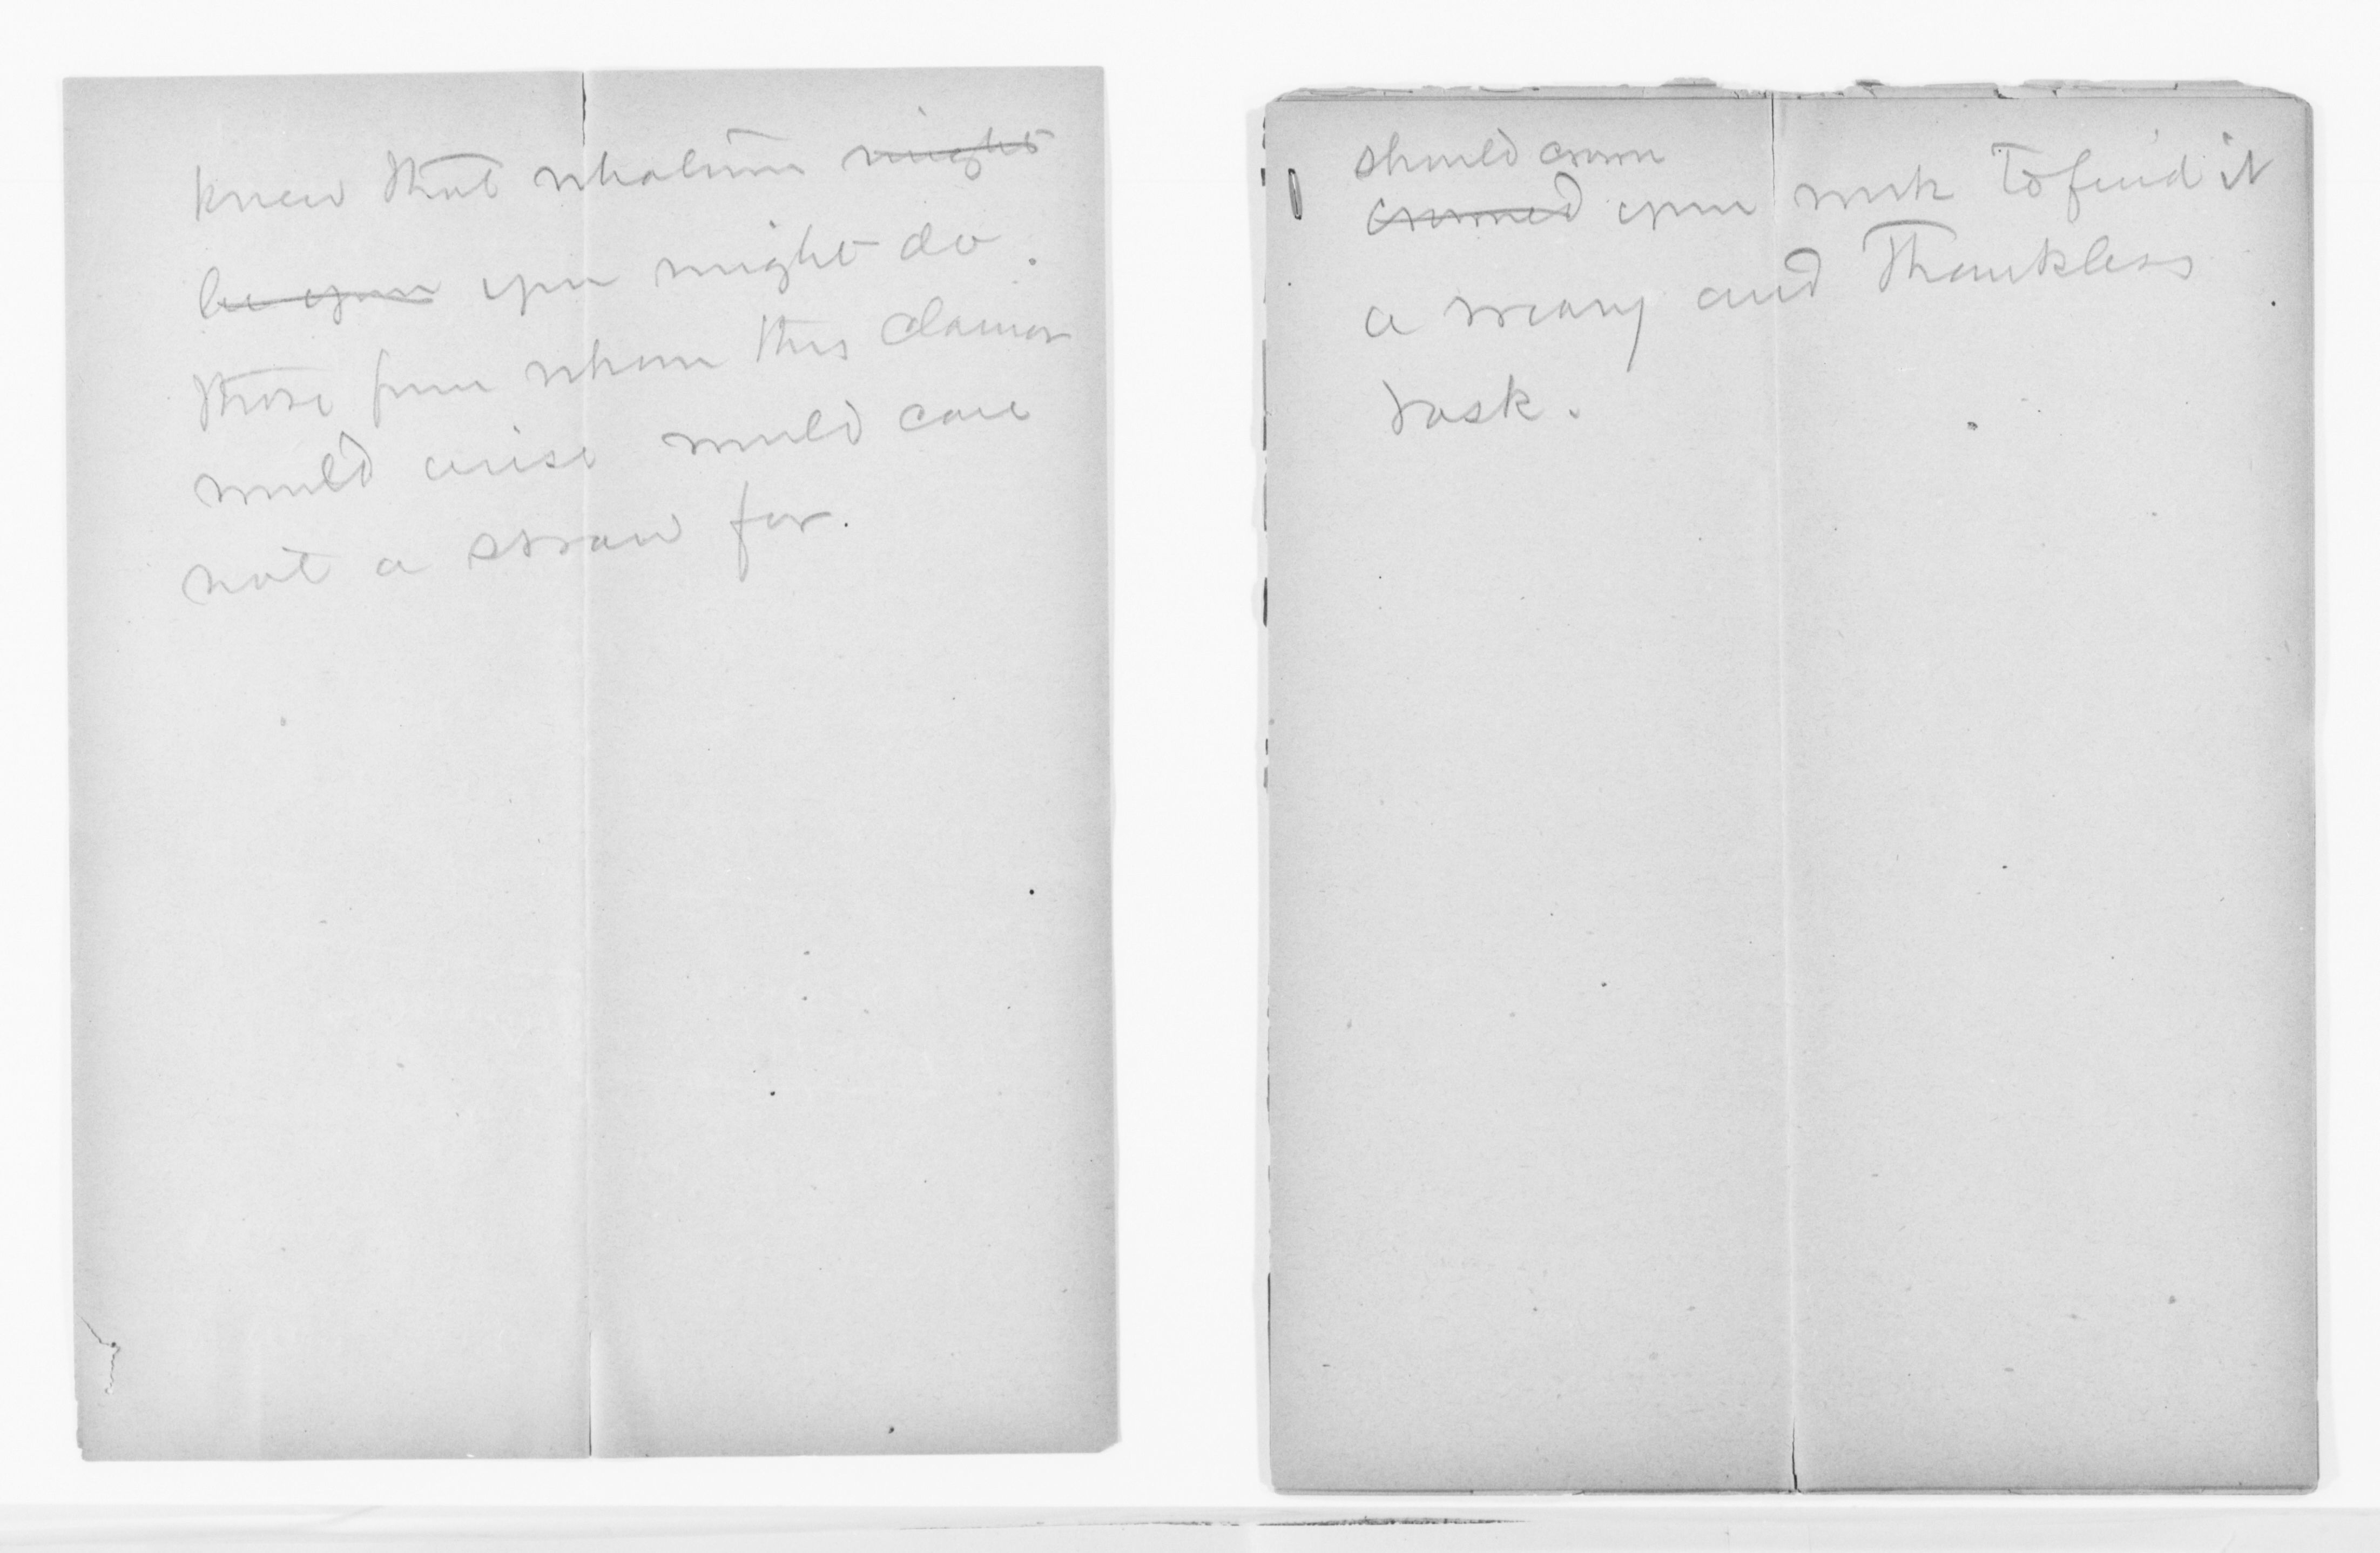 knew that whatever might
be your you might do.
those from whom this clamor
would arise would care
not a straw for.
should crown
crowned your work to find it
a weary and thankless
task.